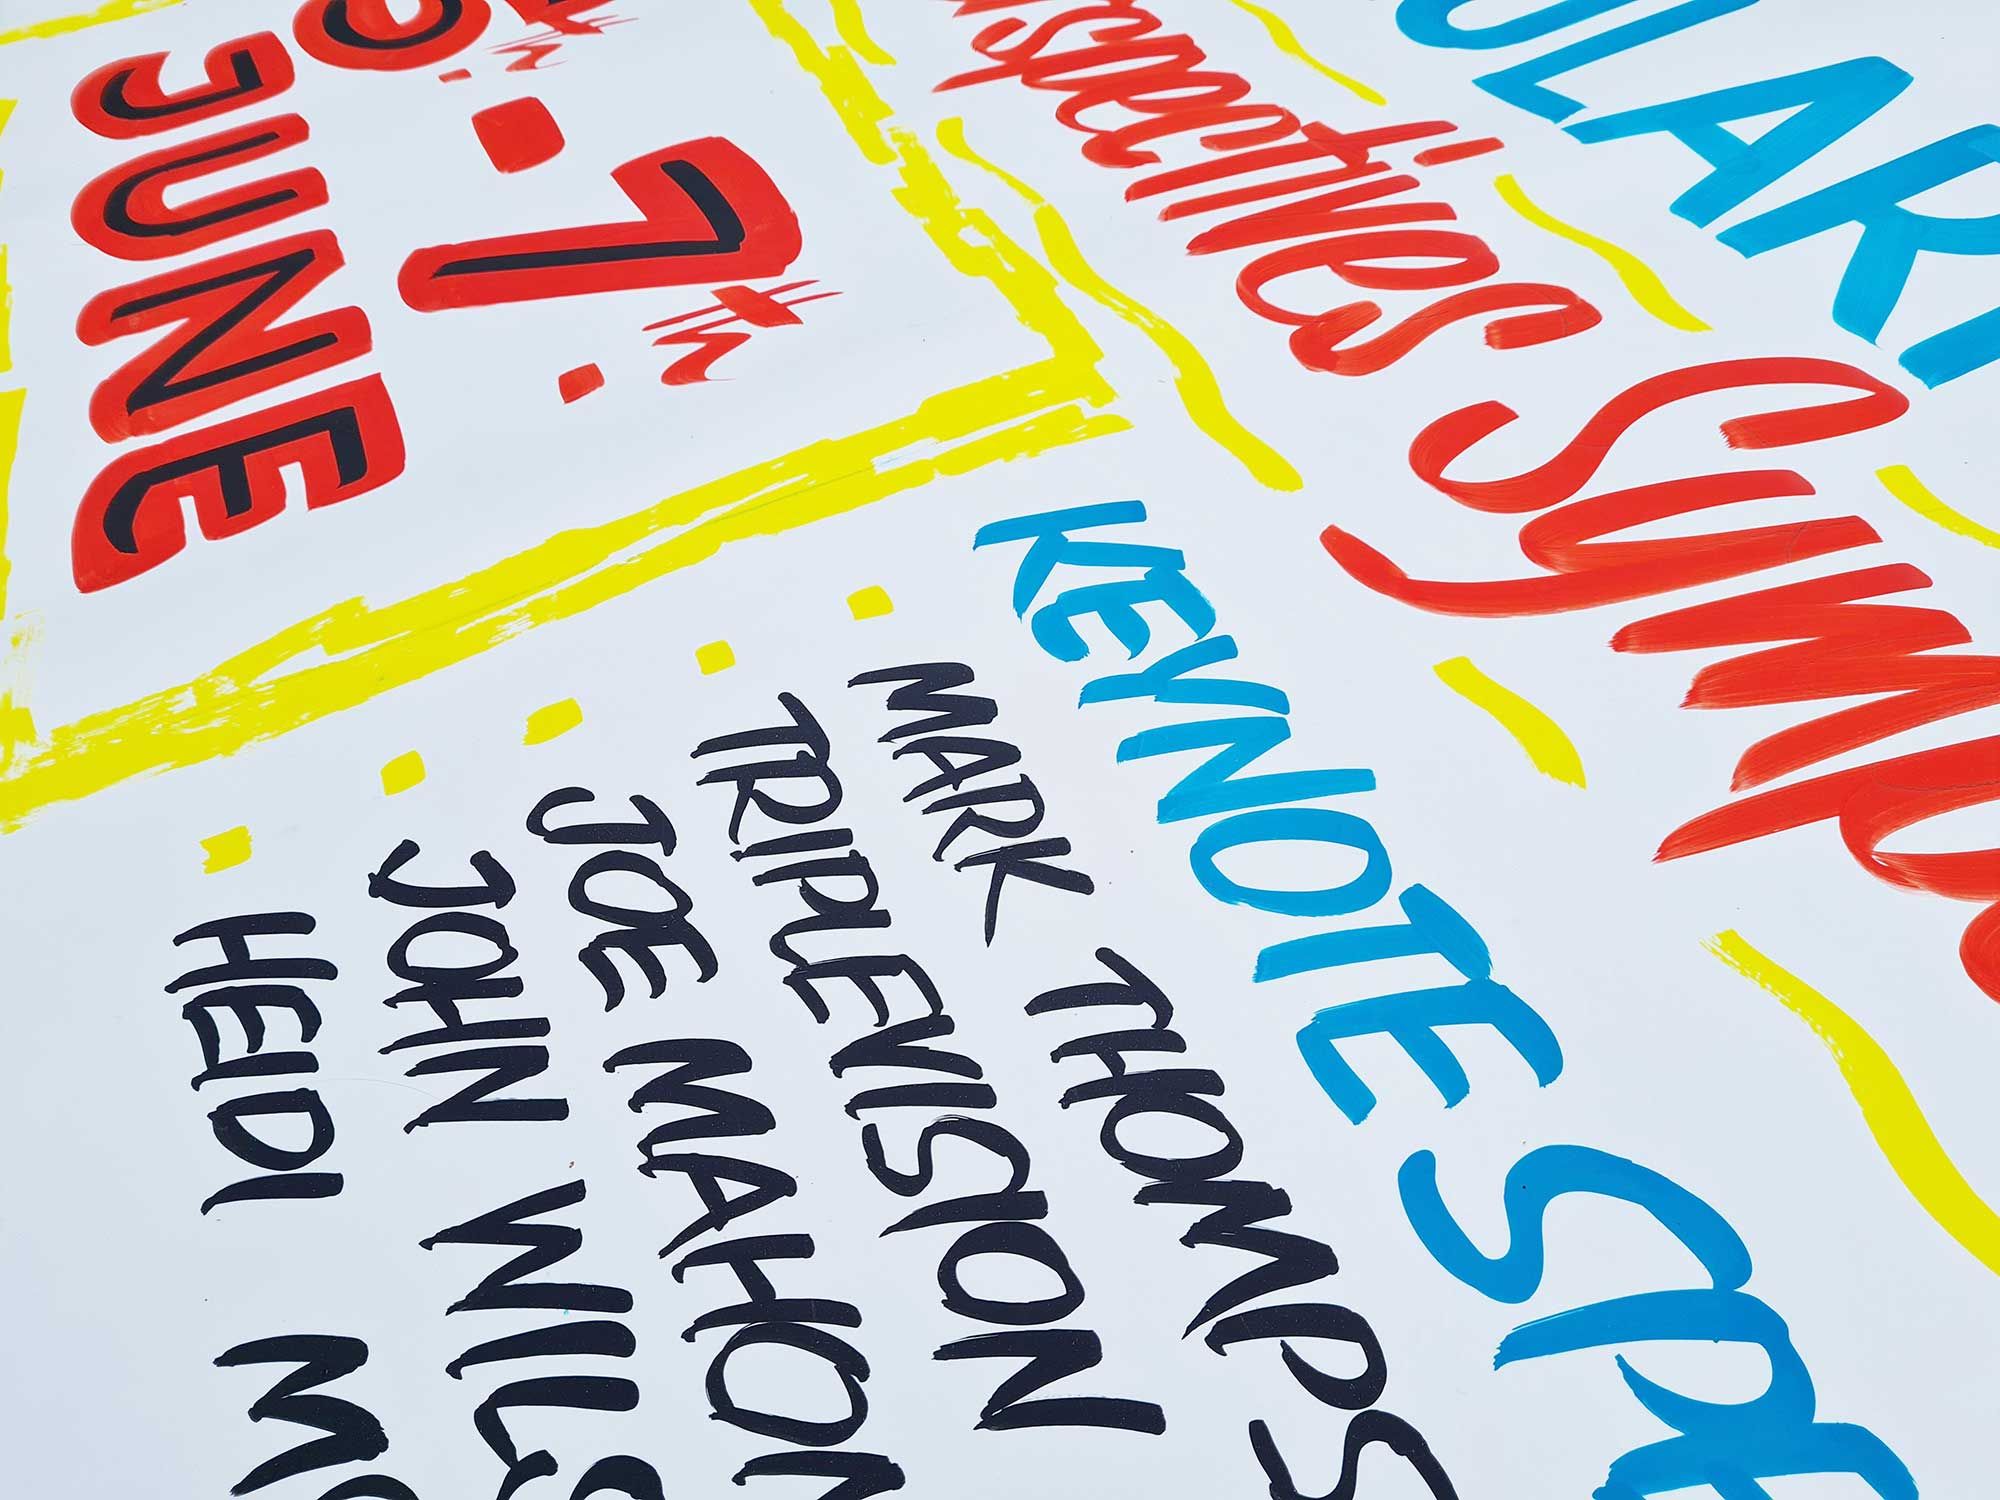 ULAR
spectives Symp
7th.
JUNE
KEYNOTE SPE
MARK THOMPS
TRIPLEVISION
JOE MAHON
JOHN WILS
HEIDI M